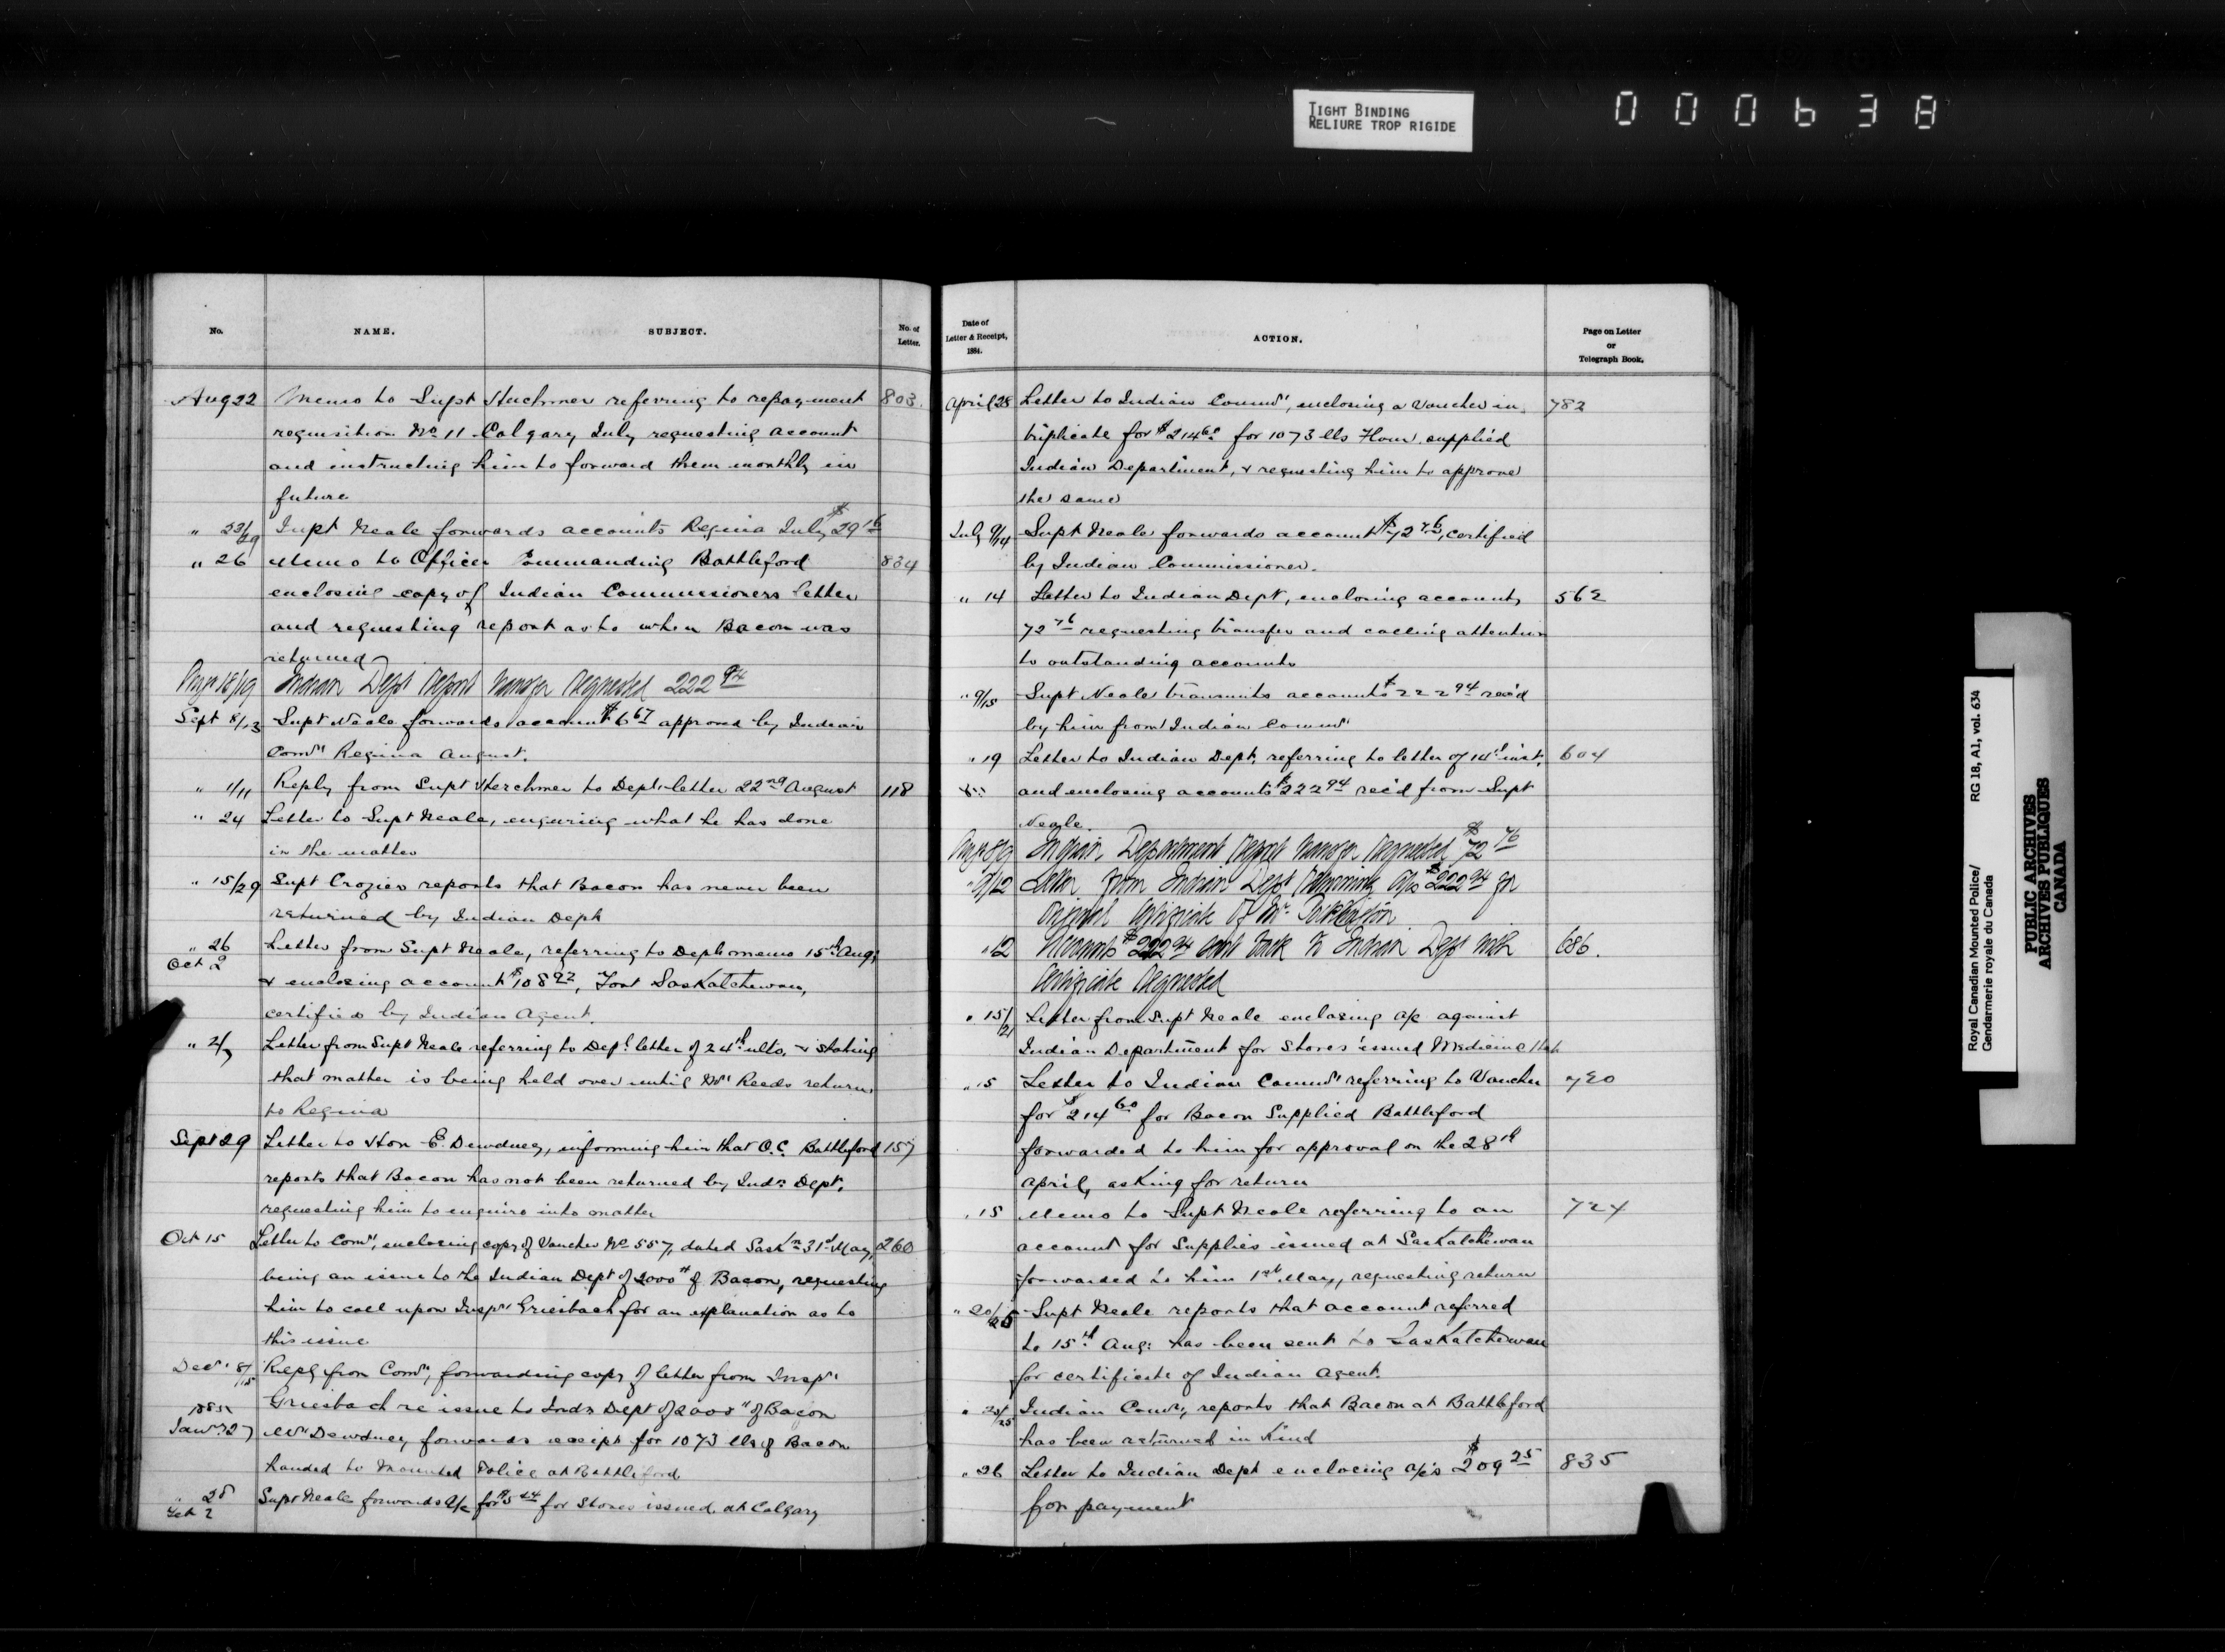 TIGHT BINDING
RELIURE TROP RIGIDE
000638
No. NAME. SUBJECT. No. of Letter.
Aug 22 Memo to Supt Herchmer referring to repayment 803.
requisition No 11 Calgary July requesting account
and instructing him to forward them monthly in
future
" 23/29 Supt Neale forwards accounts Regina July $29 16
" 26 Memo to Officer Commanding Battleford 834
enclosing copy of Indian Commissioners letter
and requesting report as to when Bacon was
returned
Augt 18/19 Indian Dept Report transfer requested 222 94
Sept 8/13 Supt Neale forwards account $6 67 approved by Indian
Comr Regina August.
" 1/11 Reply from Supt Herchmer to Depts letter 22nd August 118
" 24 Letter to Supt Neale, enquiring what he has done
in the matter
" 15/29 Supt Crozier reports that Bacon has never been
returned by Indian Dept
" 26 Letter from Supt Neale, referring to Depts memo 15th Aug;
Oct 2 & enclosing account $108 92, Fort Saskatchewan,
certified by Indian Agent.
" 2/7 Letter from Supt Neale referring to Dept letter of 24th ulto, & stating
that matter is being held over until Mr Reeds return
to Regina
Sept 29 Letter to Hon E. Dewdney, informing him that O.C. Battleford 157
reports that Bacon has not been returned by Indn Dept.
requesting him to enquire into matter
Oct 15 Letter to Comr, enclosing copy of Voucher No 557, dated Saskn 31st May, 260
being an issue to the Indian Dept of 2000# of Bacon, requesting
him to call upon Inspr Griesbach for an explanation as to
this issue
Decr 8/15 Reply from Comr, forwarding copy of letter from Inspr
Griesbach re issue to Indn Dept of 2000# of Bacon
1885 Jany 27 Mr Dewdney forwards receipt for 1073 lbs of Bacon
handed to Mounted Police at Battleford
" 28 Feb 2 Supt Neale forwards a/c for $5 44 for Stores issued at Calgary
Date of Letter & Receipt, 1884. ACTION. Page on Letter or Telegraph Book.
April 28 Letter to Indian Commr, enclosing a Voucher in 782
triplicate for $214 60 for 1073 lbs Flour supplied
Indian Department, & requesting him to approve
the same
July 9/14 Supt Neale forwards account $72 76, certified
by Indian Commissioner.
" 14 Letter to Indian Dept, enclosing accounts 562
72 76 requesting transfer and calling attention
to outstanding accounts
" 9/15 Supt Neale transmits accounts $222 94 rec'd
by him from Indian Commr
" 19 Letter to Indian Dept, referring to letter of 14th inst, 604
and enclosing accounts $222 94 rec'd from Supt
Neale.
Augt 8/9 Indian Department Report transfer requested $72 76
" 9/12 Letter from Indian Dept returning a/cs $222 94 for
original certificate of Mr
" 12 Accounts $222 94 sent back to Indian Dept with 686.
certificate requested
" 15/21 Letter from Supt Neale enclosing a/c against
Indian Department for Stores issued Medicine Hat
" 15 Letter to Indian Commr referring to Voucher 720
for $214 60 for Bacon Supplied Battleford
forwarded to him for approval on the 28th
April, asking for return
" 15 Memo to Supt Neale referring to an 724
account for Supplies issued at Saskatchewan
forwarded to him 1st May, requesting return
" 20/25 Supt Neale reports that account referred
to 15th Aug: has been sent to Saskatchewan
for certificate of Indian Agent.
" 20/25 Indian Comr, reports that Bacon at Battleford
has been returned in Kind
" 26 Letter to Indian Dept enclosing a/cs $209 25 835
for payment
Royal Canadian Mounted Police/ RG 18, A1, vol. 634
Gendarmerie royale du Canada
PUBLIC ARCHIVES
ARCHIVES PUBLIQUES
CANADA